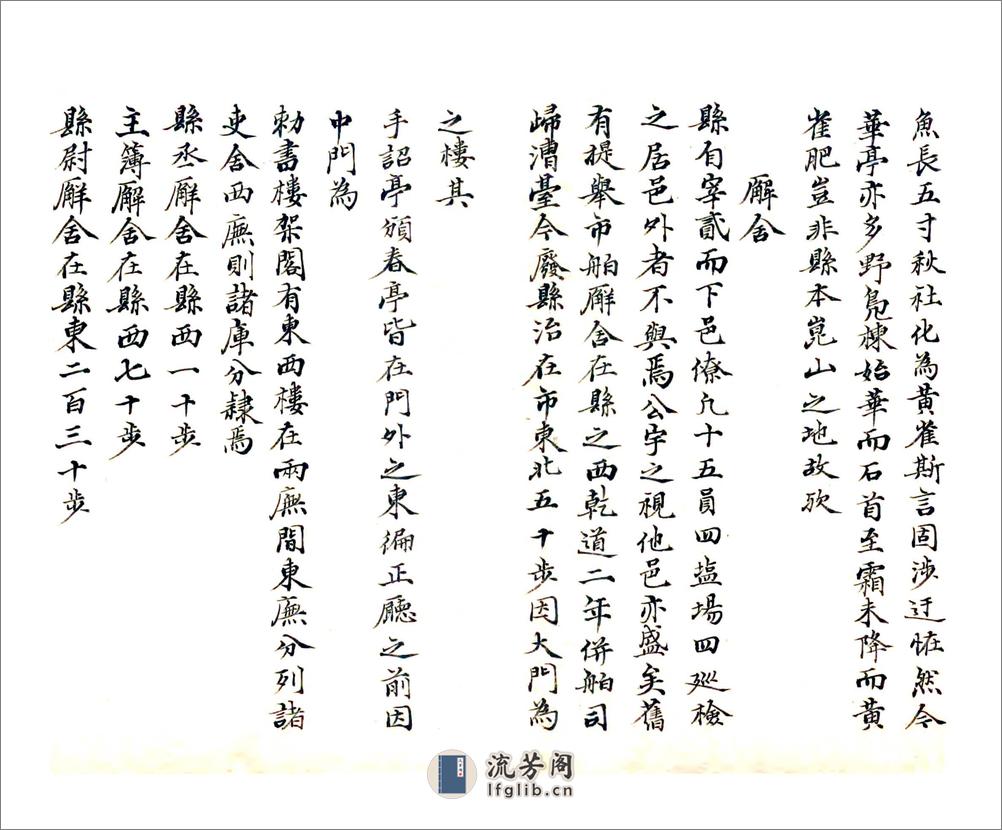 魚長五寸秋社化為黃雀斯言固涉迂恠然今
華亭亦多野鳧楝始華而石首至霜未降而黃
雀肥豈非縣本崑山之地故欤
廨舍
縣有宰貳而下邑僚凡十五員四塩場四廵檢
之居邑外者不與焉公宇之視他邑亦盛矣舊
有提舉市舶廨舍在縣之西乾道二年併舶司
歸漕臺今廢縣治在市東北五十步因大門為
之樓其
手詔亭頒春亭皆在門外之東徧正廳之前因
中門為
勅書樓架閣有東西樓在兩廡間東廡分列諸
吏舍西廡則諸庫分隸焉
縣丞廨舍在縣西一十步
主簿廨舍在縣西七十步
縣尉廨舍在縣東二百三十步
流芳阁
lfglib.cn